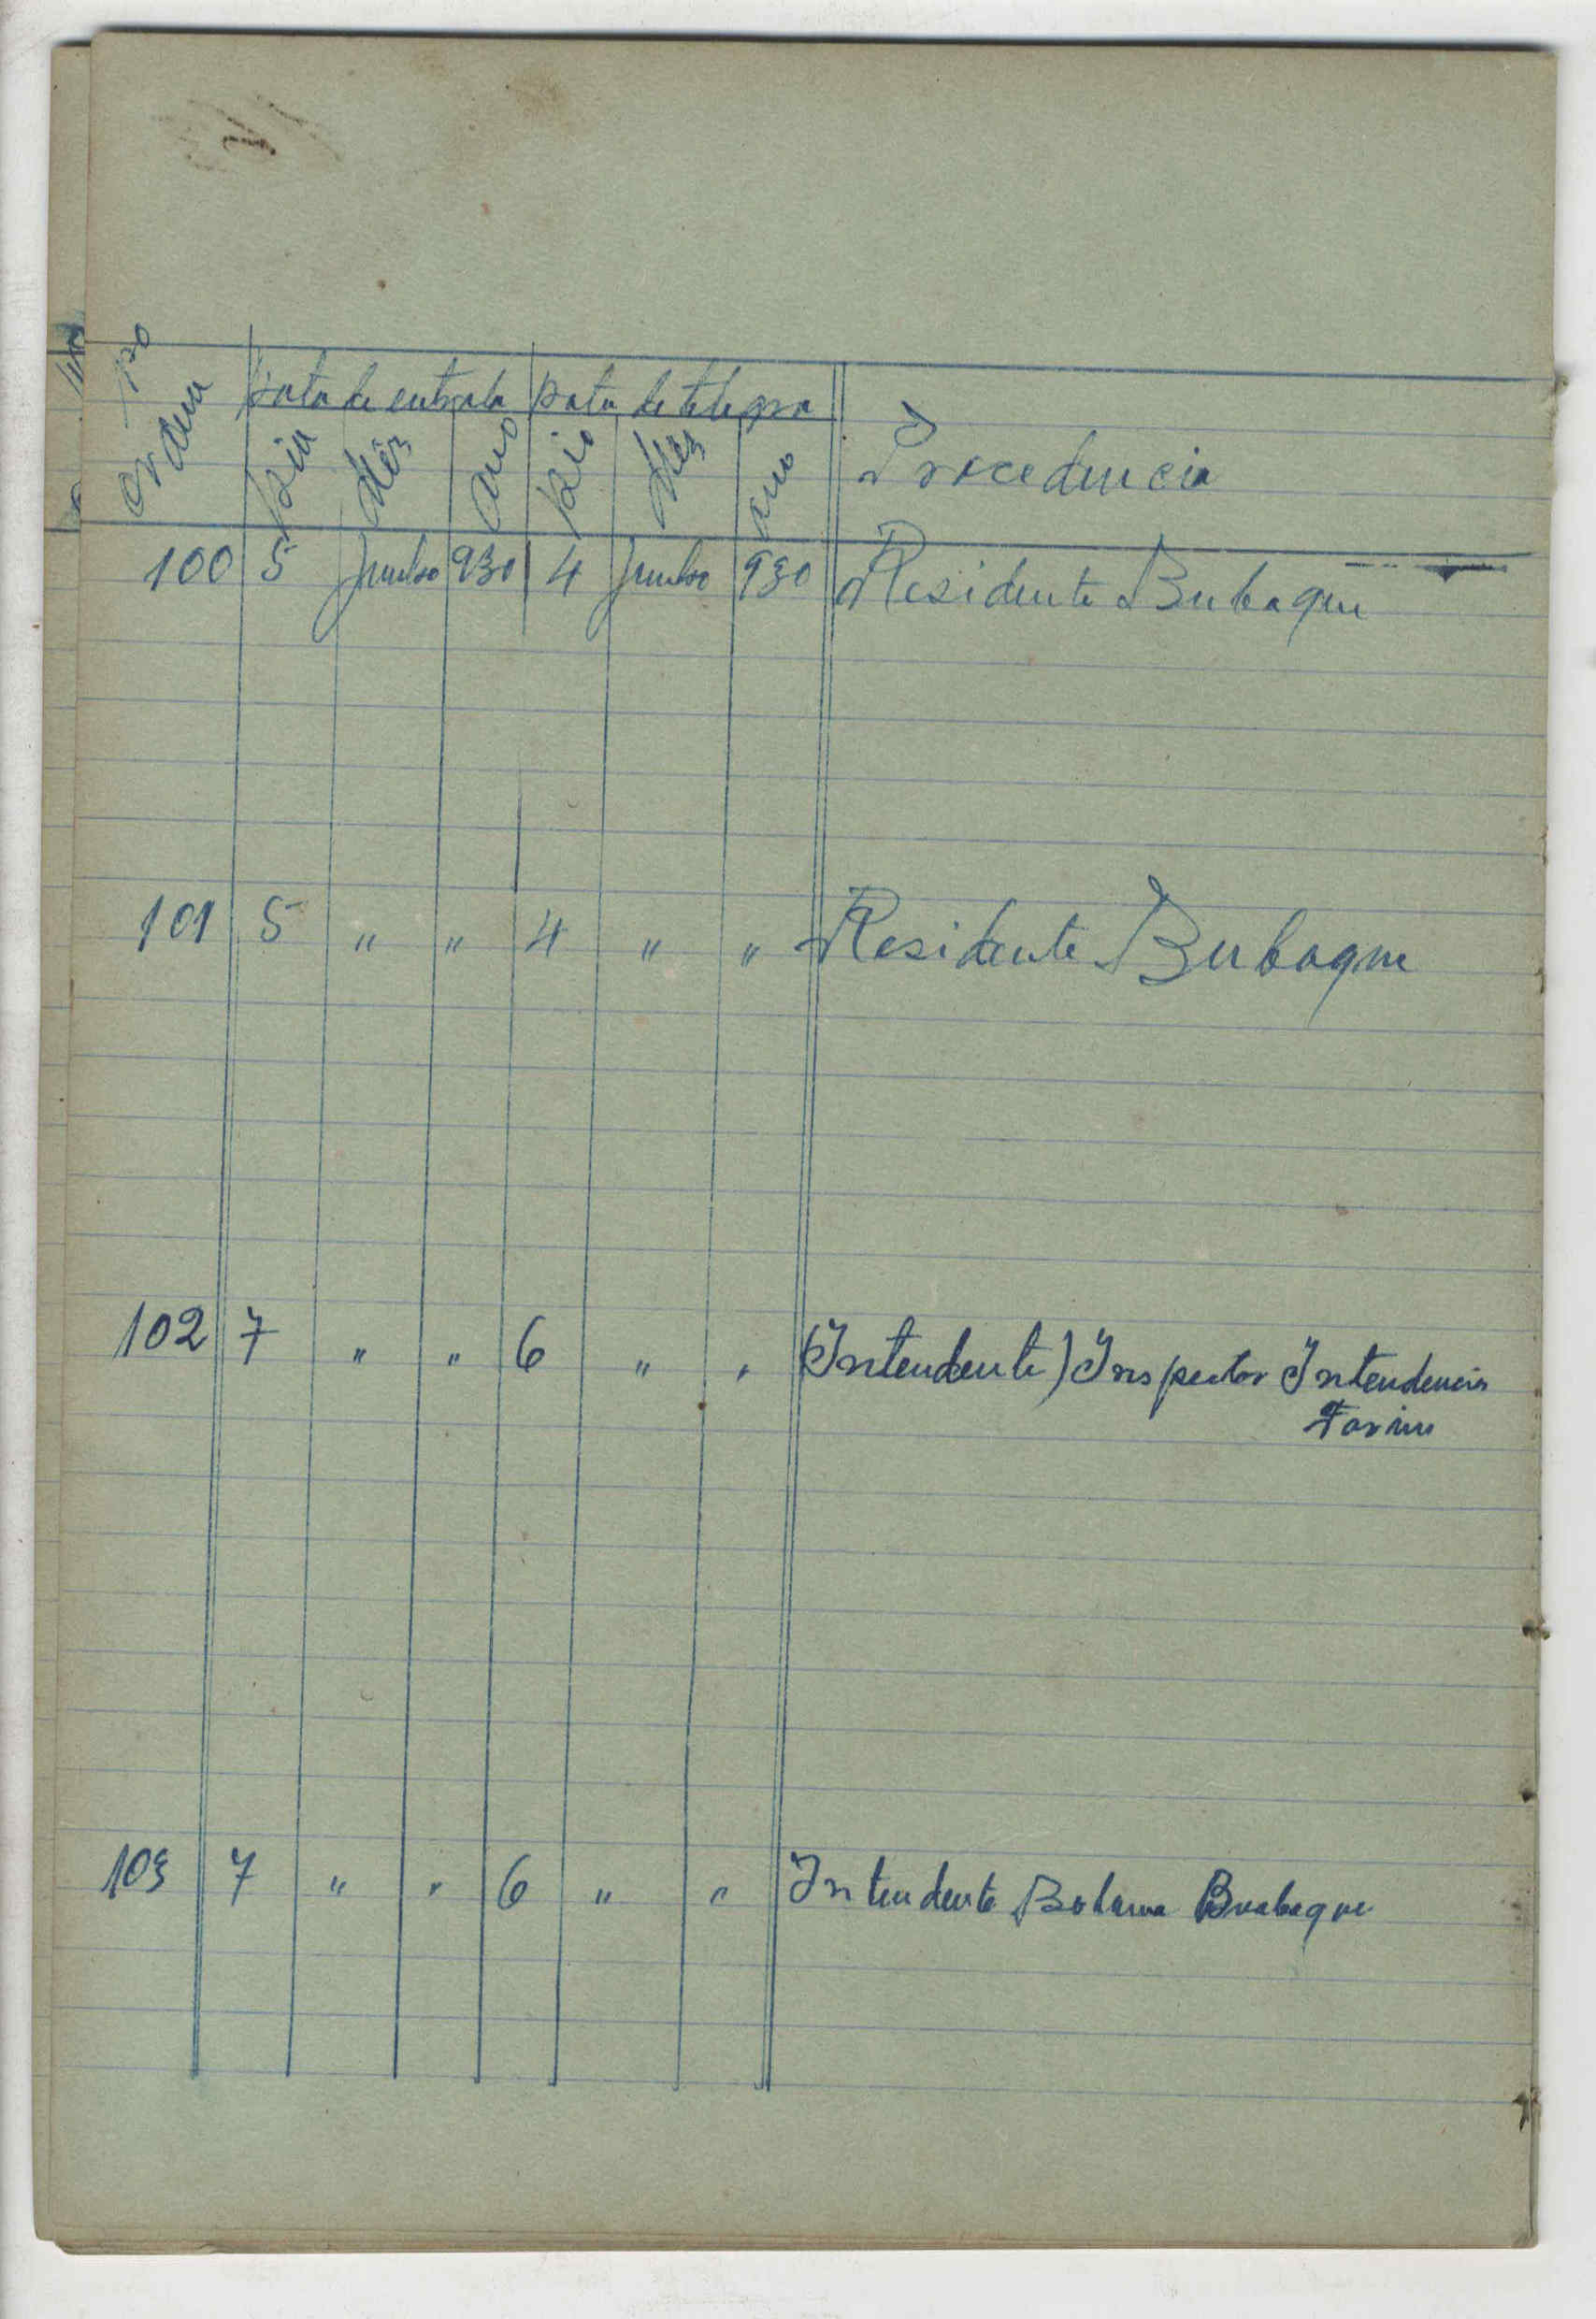 No ordem
Data de entrada Data de telegra
Dia Mês ano Dia Mês ano Procedencia
100 5 Junho 930 4 Junho 930 Residente Bubaque
101 5 " " 4 " " Residente Bubaque
102 7 " " 6 " " (Intendente) Inspector Intendencia
Farim
103 7 " " 6 " " Intendente Bolama Bubaque